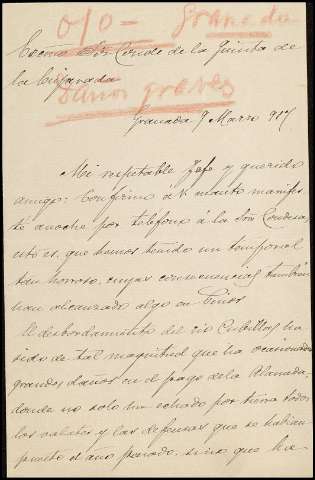 ojo - Granada
Excmo Sr Conde de la Quinta de
la Enjarada
Daños graves
Granada 9 Marzo 917
Mi respetable Jefe y querido
amigo: Confirmo a V. cuanto manifes-
té anoche por teléfono á la Sra Condesa,
esto es, que hemos tenido un temporal
tan horroso, cuyas consecuencias tambien
han alcanzado algo en
El desbordamiento del rio Cubillas ha
sido de tal magnitud que ha ocasionado
grandes daños en el pago de la Alameda,
donde no solo ha echado por tierra todos
los y las defensas que se habian
puesto el año pasado, sino que ha